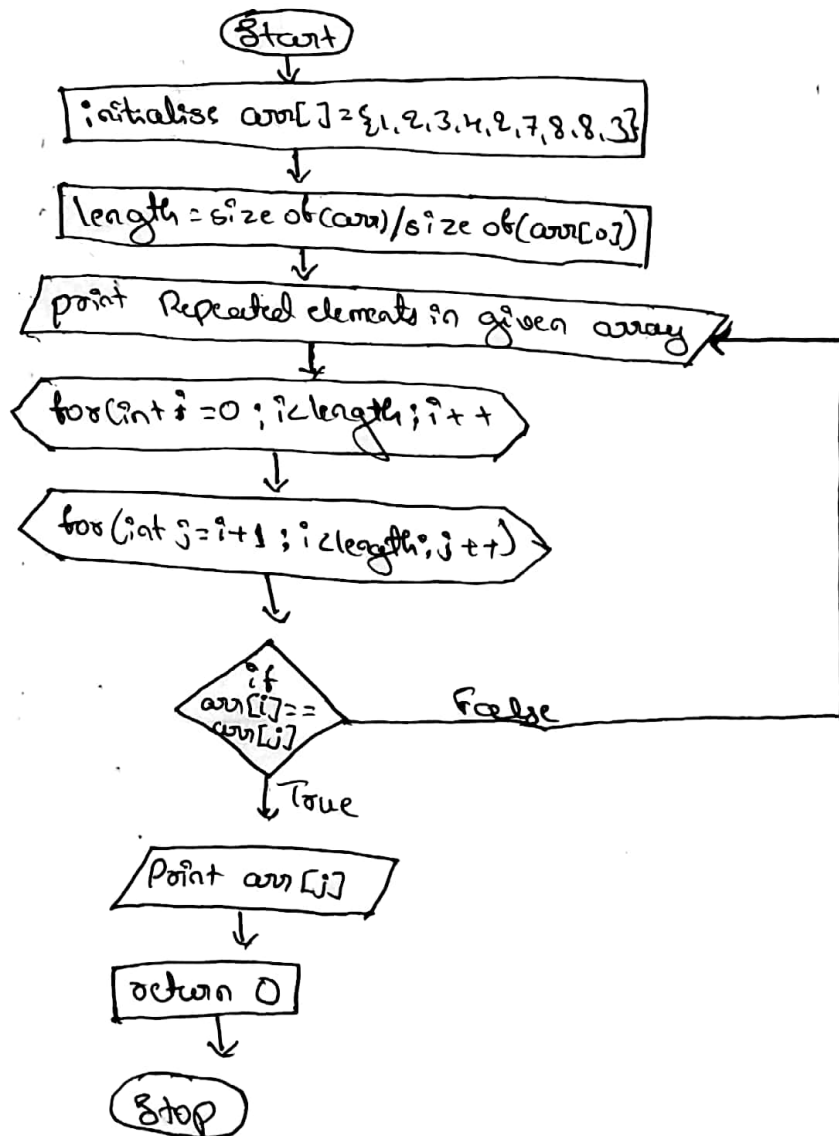 Start
initialise arr[ ] = {1, 2, 3, 4, 2, 7, 8, 8, 3}
length = size of(arr)/size of(arr[0])
print Repeated elements in given array
for(int i = 0 ; i<length ; i + +
for(int j = i+1 ; i<length ; j ++)
if
arr[i]==
arr[j]
False
True
Print arr [j]
return 0
Stop